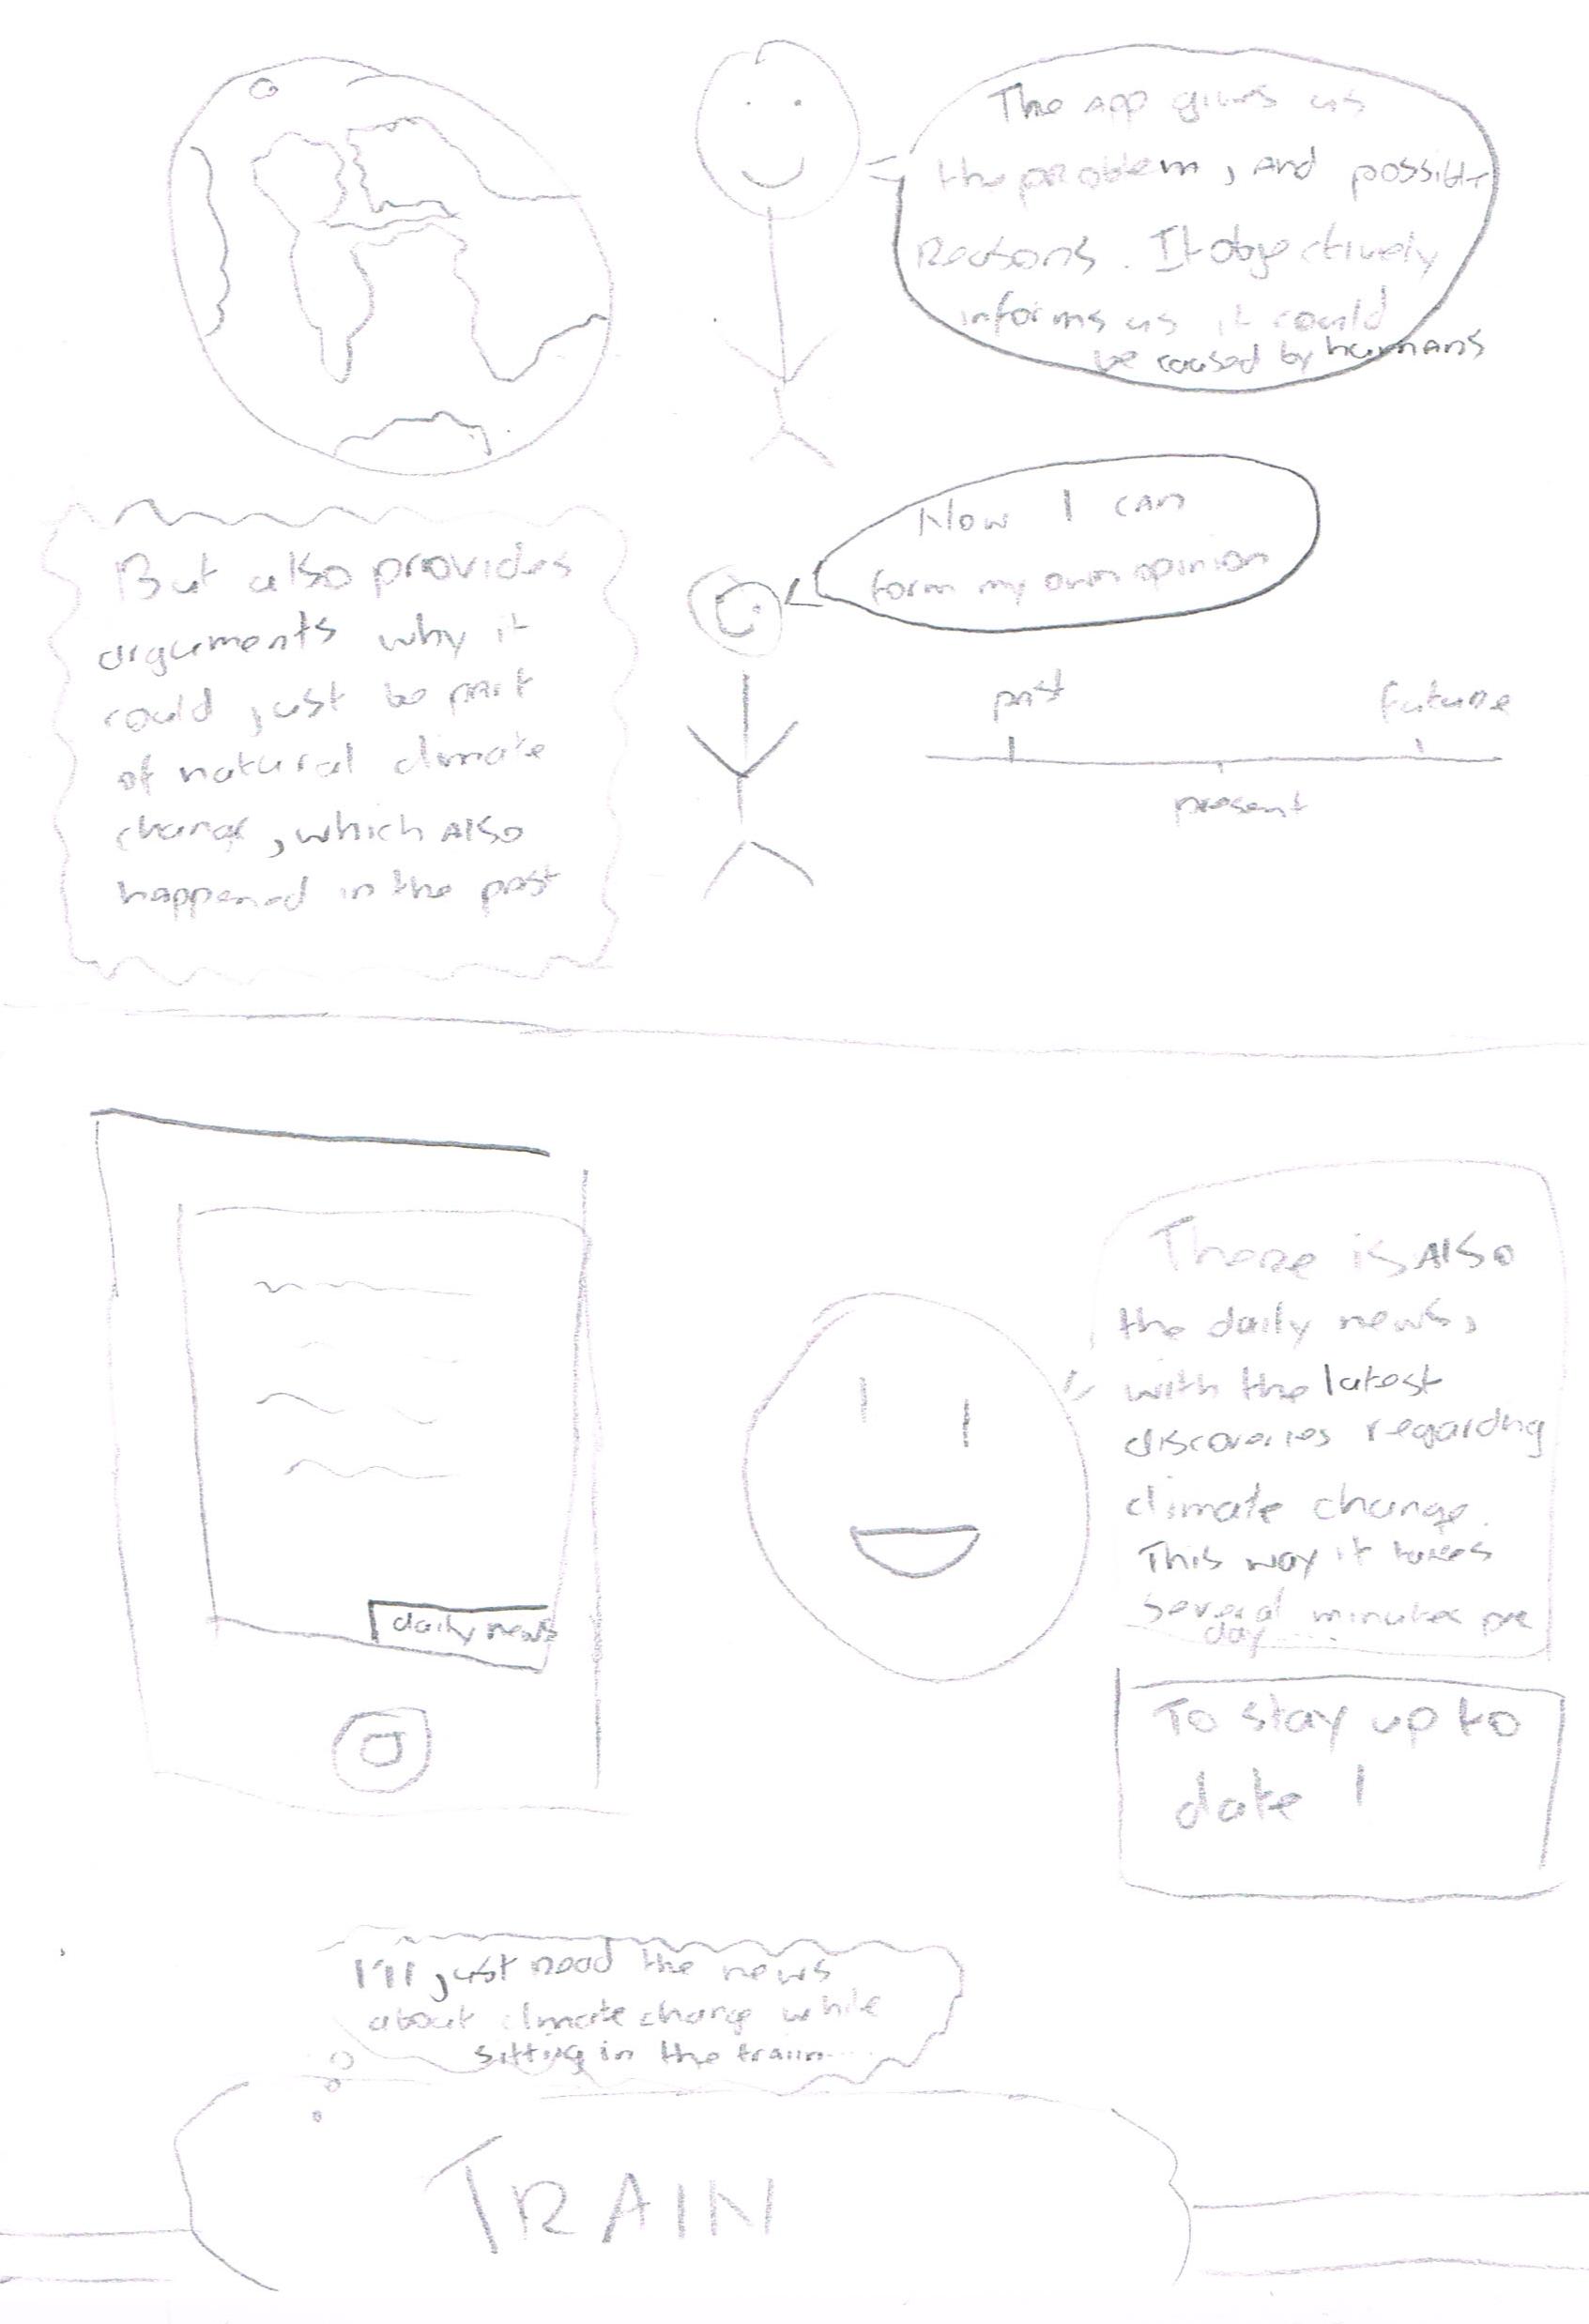 The app gives us
the problem, and possible
Reasons. It objectively
informs us it could
be caused by humans
Now I can
form my own opinion
But also provides
arguments why it
could just be part
of natural climate
change, which also
happened in the past
past
future
present
There is also
the daily news,
with the latest
discoveries regarding
climate change.
This way it takes
several minutes per
day ....
daily news
To stay up to
date!
I'll just need the news
about climate change while
sitting in the train....
TRAIN